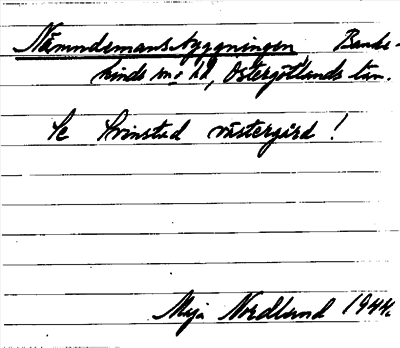 Nämndemansbyggningen Banke-
kinds sn o hd, Östergötlands län.
Se Svinstad västergård!
Maja Nordlund 1944.